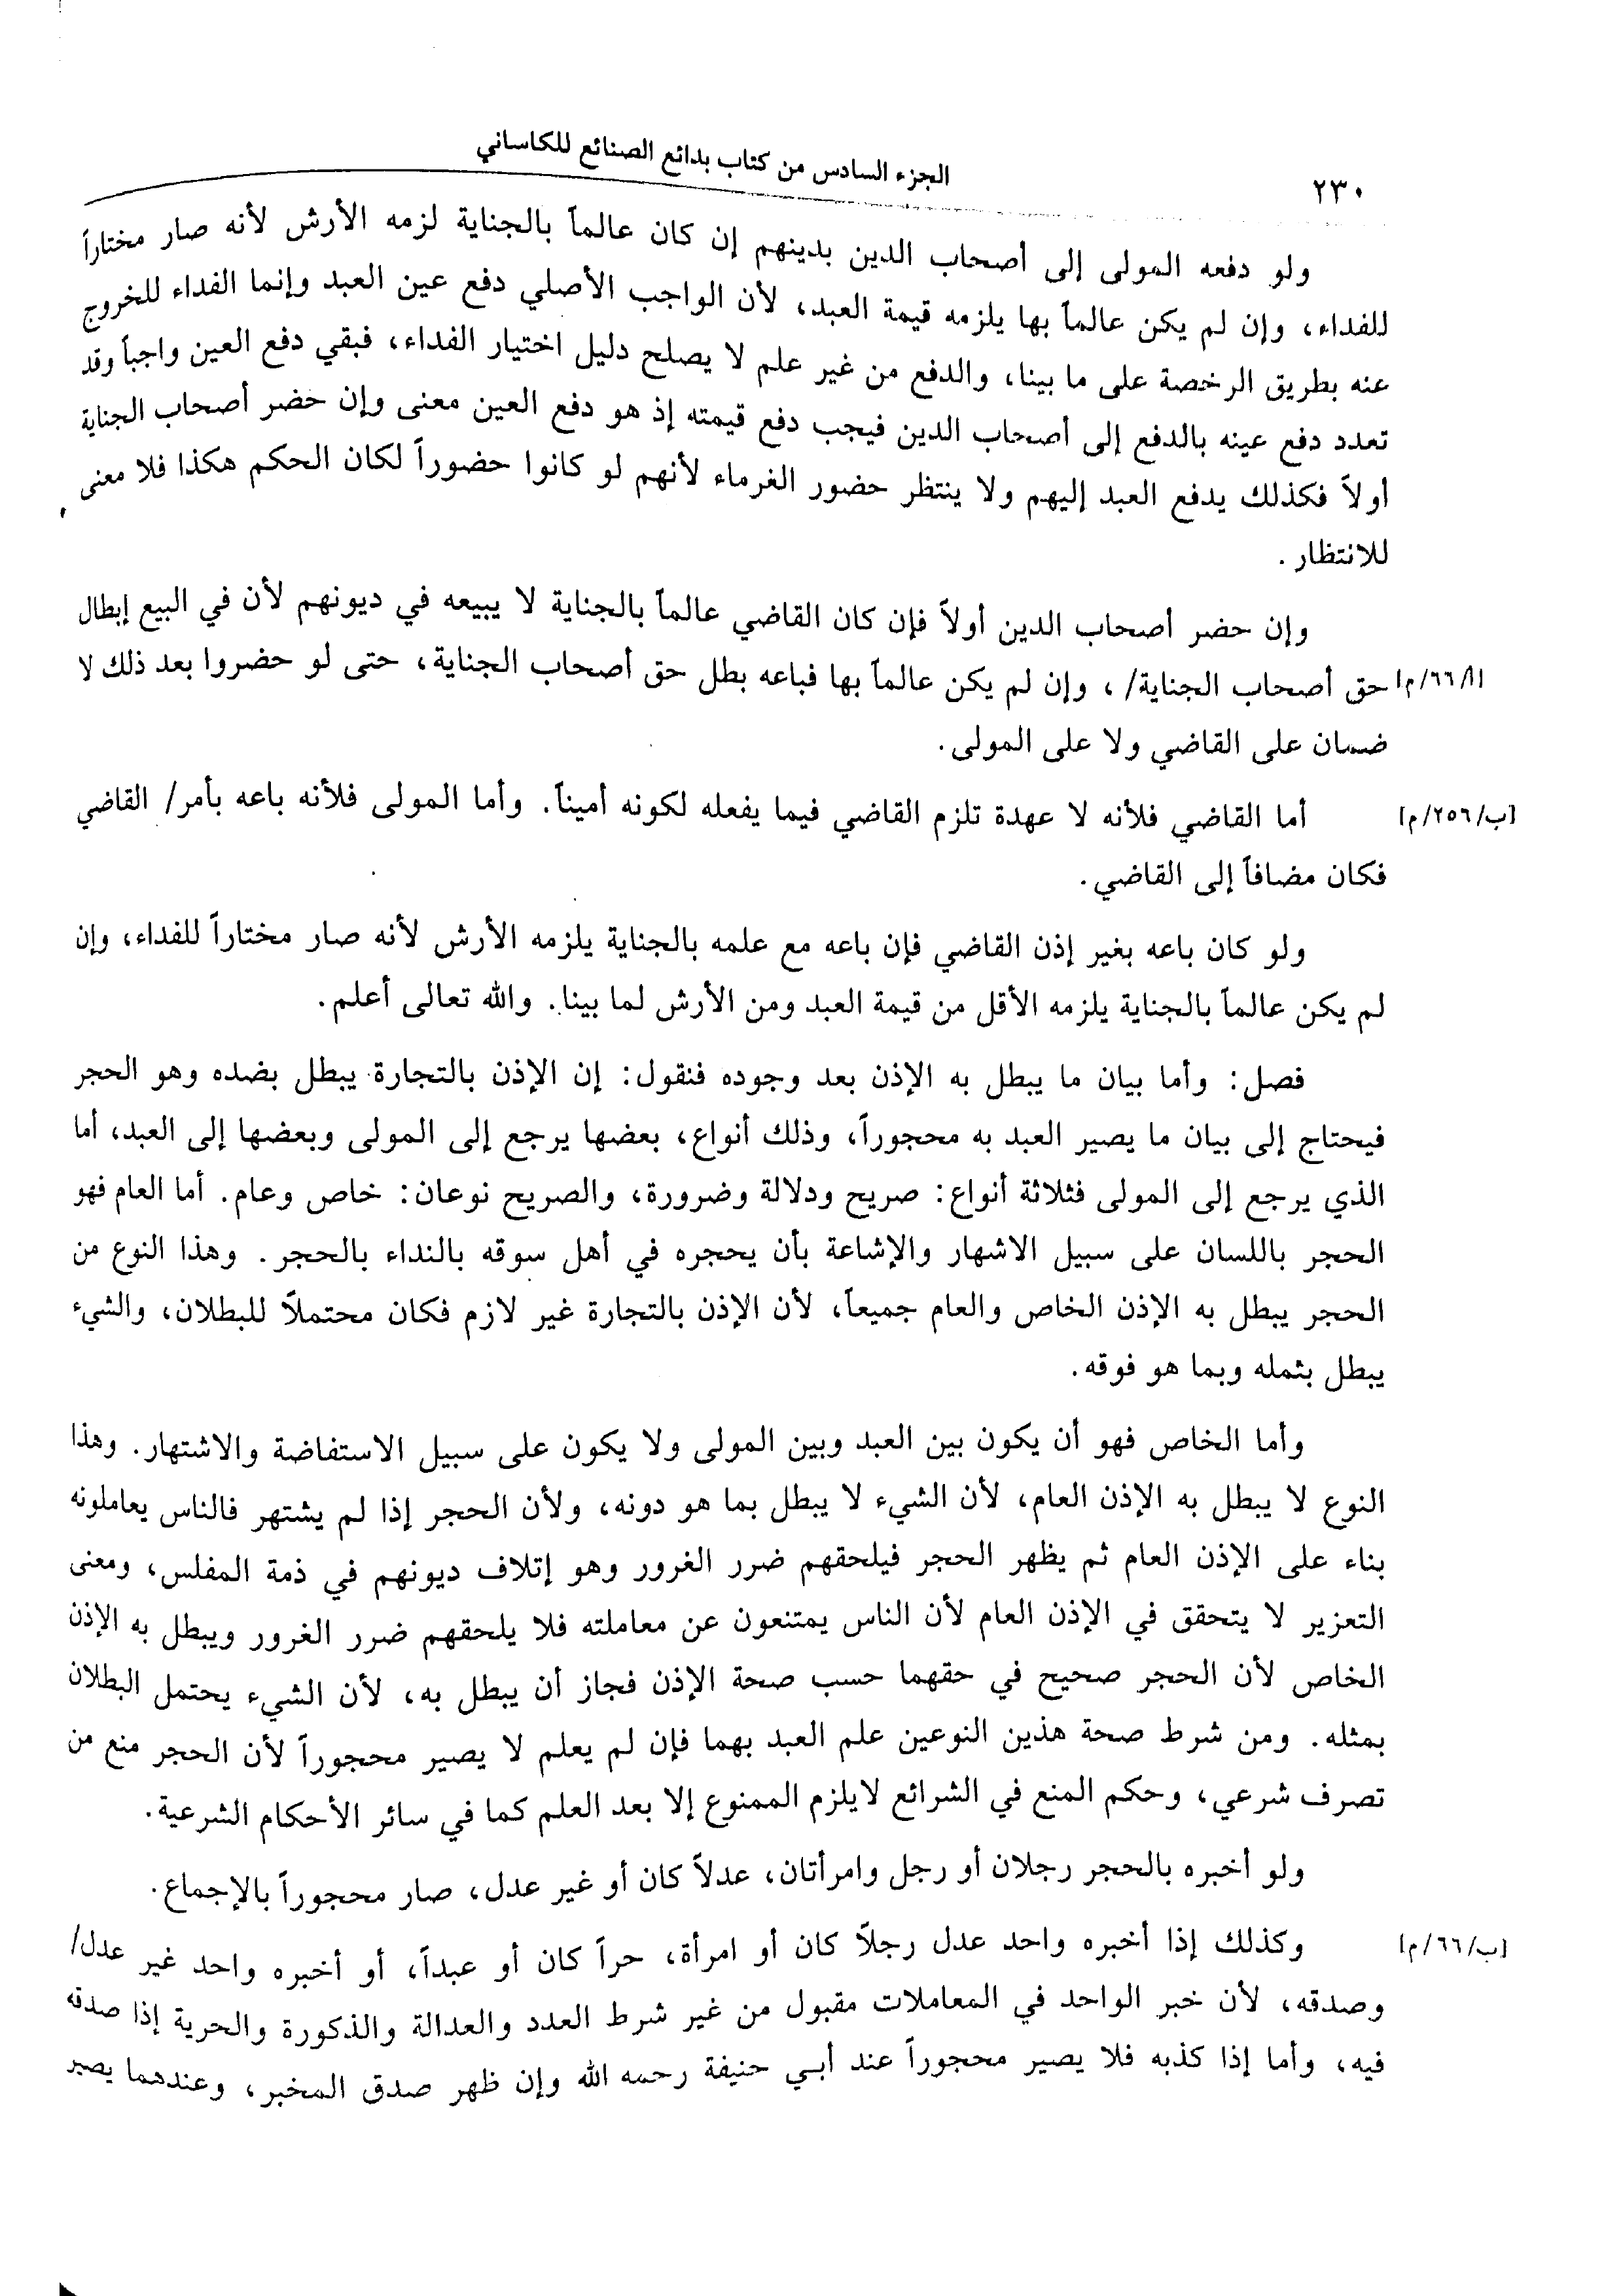 ٢٣٠
الجزء السادس من كتاب بدائع الصنائع للكاساني
ولو دفعه المولى إلى أصحاب الدين بدينهم إن كان عالماً بالجناية لزمه الأرش لأنه صار مختاراً
للفداء، وإن لم يكن عالماً بها يلزمه قيمة العبد، لأن الواجب الأصلي دفع عين العبد وإنما الفداء للخروج
عنه بطريق الرخصة على ما بينا، والدفع من غير علم لا يصلح دليل اختيار الفداء، فبقي دفع العين واجباً وقد
تعدد دفع عينه بالدفع إلى أصحاب الدين فيجب دفع قيمته إذ هو دفع العين معنى وإن حضر أصحاب الجناية
أولاً فكذلك يدفع العبد إليهم ولا ينتظر حضور الغرماء لأنهم لو كانوا حضوراً لكان الحكم هكذا فلا معنى
للانتظار.
وإن حضر أصحاب الدين أولاً فإن كان القاضي عالماً بالجناية لا يبيعه في ديونهم لأن في البيع إبطال
[أ/٦٦/م] حق أصحاب الجناية/، وإن لم يكن عالماً بها فباعه بطل حق أصحاب الجناية، حتى لو حضروا بعد ذلك لا
ضمان على القاضي ولا على المولى.
[ب/٢٥٦/م] أما القاضي فلأنه لا عهدة تلزم القاضي فيما يفعله لكونه أميناً. وأما المولى فلأنه باعه بأمر/ القاضي
فكان مضافاً إلى القاضي.
ولو كان باعه بغير إذن القاضي فإن باعه مع علمه بالجناية يلزمه الأرش لأنه صار مختاراً للفداء، وإن
لم يكن عالماً بالجناية يلزمه الأقل من قيمة العبد ومن الأرش لما بينا. والله تعالى أعلم.
فصل: وأما بيان ما يبطل به الإذن بعد وجوده فنقول: إن الإذن بالتجارة يبطل بضده وهو الحجر
فيحتاج إلى بيان ما يصير العبد به محجوراً، وذلك أنواع، بعضها يرجع إلى المولى وبعضها إلى العبد، أما
الذي يرجع إلى المولى فثلاثة أنواع: صريح ودلالة وضرورة، والصريح نوعان: خاص وعام. أما العام فهو
الحجر باللسان على سبيل الاشهار والإشاعة بأن يحجره في أهل سوقه بالنداء بالحجر. وهذا النوع من
الحجر يبطل به الإذن الخاص والعام جميعاً، لأن الإذن بالتجارة غير لازم فكان محتملاً للبطلان، والشيء
يبطل بثمله وبما هو فوقه.
وأما الخاص فهو أن يكون بين العبد وبين المولى ولا يكون على سبيل الاستفاضة والاشتهار. وهذا
النوع لا يبطل به الإذن العام، لأن الشيء لا يبطل بما هو دونه، ولأن الحجر إذا لم يشتهر فالناس يعاملونه
بناء على الإذن العام ثم يظهر الحجر فيلحقهم ضرر الغرور وهو إتلاف ديونهم في ذمة المفلس، ومعنى
التعزير لا يتحقق في الإذن العام لأن الناس يمتنعون عن معاملته فلا يلحقهم ضرر الغرور ويبطل به الإذن
الخاص لأن الحجر صحيح في حقهما حسب صحة الإذن فجاز أن يبطل به، لأن الشيء يحتمل البطلان
بمثله. ومن شرط صحة هذين النوعين علم العبد بهما فإن لم يعلم لا يصير محجوراً لأن الحجر منع من
تصرف شرعي، وحكم المنع في الشرائع لايلزم الممنوع إلا بعد العلم كما في سائر الأحكام الشرعية.
ولو أخبره بالحجر رجلان أو رجل وامرأتان، عدلاً كان أو غير عدل، صار محجوراً بالإجماع.
[ب/٦٦/م] وكذلك إذا أخبره واحد عدل رجلاً كان أو امرأة، حراً كان أو عبداً، أو أخبره واحد غير عدل/
وصدقه، لأن خبر الواحد في المعاملات مقبول من غير شرط العدد والعدالة والذكورة والحرية إذا صدقه
فيه، وأما إذا كذبه فلا يصير محجوراً عند أبي حنيفة رحمه الله وإن ظهر صدق المخبر، وعندهما يصير